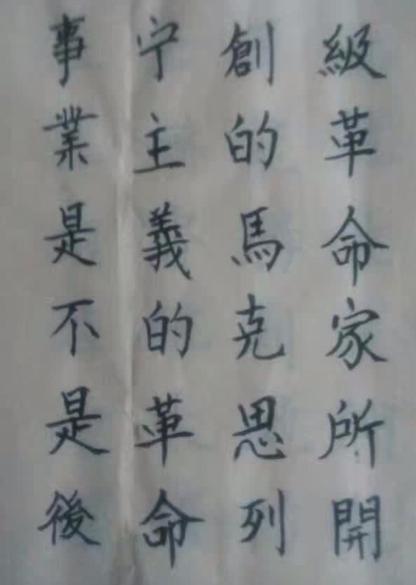 級革命家所開
創的馬克思列
宁主義的革命
事業是不是後